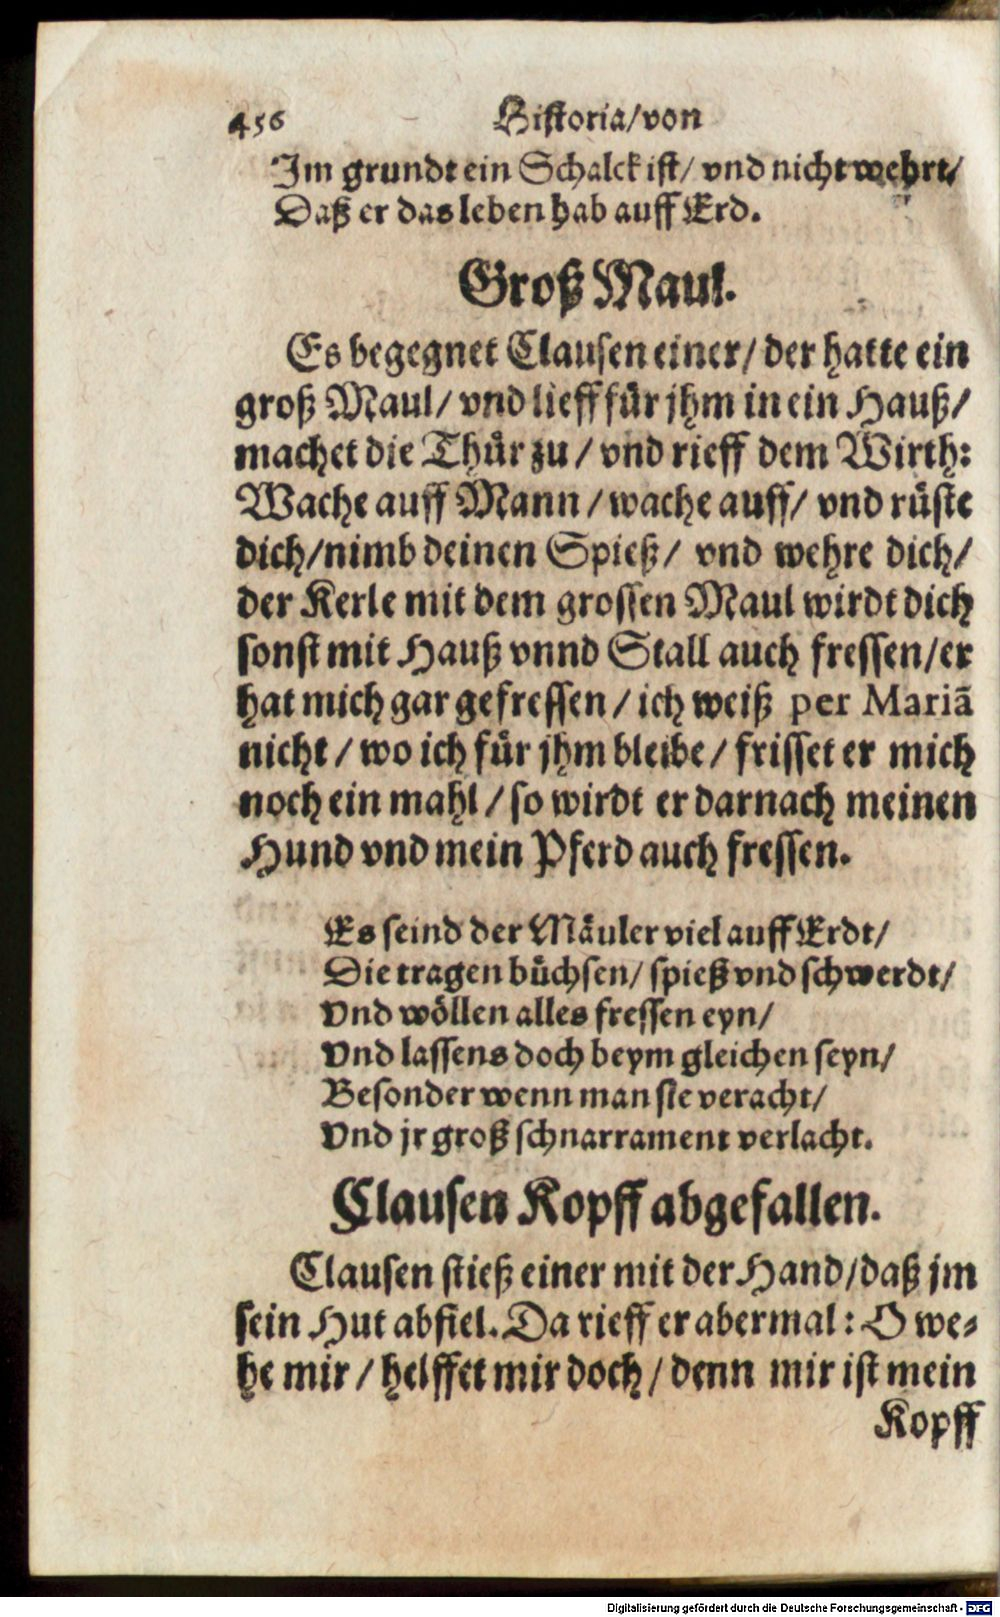 456 Historia/von
Im grundt ein Schalck ist/ vnd nicht wehrt/
Daß er das leben hab auff Erd.
Groß Maul.
Es begegnet Clausen einer/ der hatte ein
groß Maul/ vnd lieff für jhm in ein Hauß/
machet die Thür zu / vnd rieff dem Wirth:
Wache auff Mann / wache auff/ vnd rüste
dich/nimb deinen Spieß/ vnd wehre dich/
der Kerle mit dem grossen Maul wirdt dich
sonst mit Hauß vnnd Stall auch fressen/er
hat mich gar gefressen / ich weiß per Mariã
nicht / wo ich für jhm bleibe / frisset er mich
noch ein mahl / so wirdt er darnach meinen
Hund vnd mein Pferd auch fressen.
Es seind der Mäuler viel auff Erdt/
Die tragen büchsen/ spieß vnd schwerdt/
Vnd wöllen alles fressen eyn/
Vnd lassens doch beym gleichen seyn/
Besonder wenn man sie veracht/
Vnd jr groß schnarrament verlacht.
Clausen Kopff abgefallen.
Clausen stieß einer mit der Hand/daß jm
sein Hut abfiel. Da rieff er abermal: O we-
he mir / helffet mir doch / denn mir ist mein
Kopff
Digitalisierung gefördert durch die Deutsche Forschungsgemeinschaft - DFG